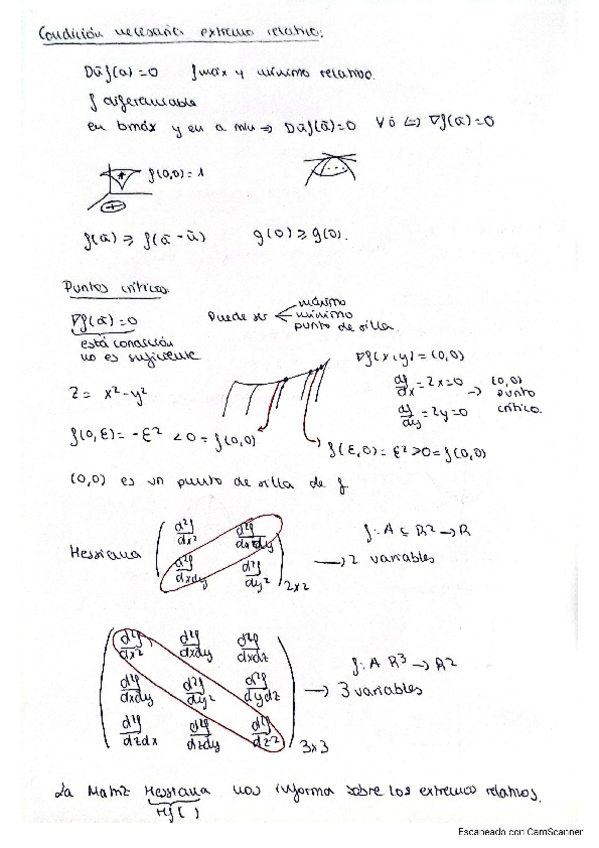 Condición necesaria extremo relativo:
Dūf(a)=0 fmáx y mínimo relativo.
f diferenciable
en bmáx y en a min ⇒ Dūf(ā)=0 ∀ū ⇔ ∇f(ā)=0
f(0,0)=1
f(ā) ≥ f(ā-ū) g(0) ≥ g(0).
Puntos críticos:
∇f(ā)=0 Puede ser máximo
mínimo
punto de silla.
está condición
no es suficiente
∇f(x,y)=(0,0)
Z= x²-y²
df/dx=2x=0 → (0,0) punto crítico.
df/dy=2y=0
f(0,ε)=-ε² <0=f(0,0)
f(ε,0)=ε²>0=f(0,0)
(0,0) es un punto de silla de f
Hessiana
d²f/dx² d²f/dxdy
d²f/dxdy d²f/dy²
2x2
f: A ⊆ R² → R
→ 2 variables
d²f/dx² d²f/dxdy d²f/dxdz
d²f/dxdy d²f/dy² d²f/dydz
d²f/dzdx d²f/dzdy d²f/dz²
3x3
f: A R³ → R²
→ 3 variables
La Matriz Hessiana nos informa sobre los extremos relativos.
Hf( )
Escaneado con CamScanner